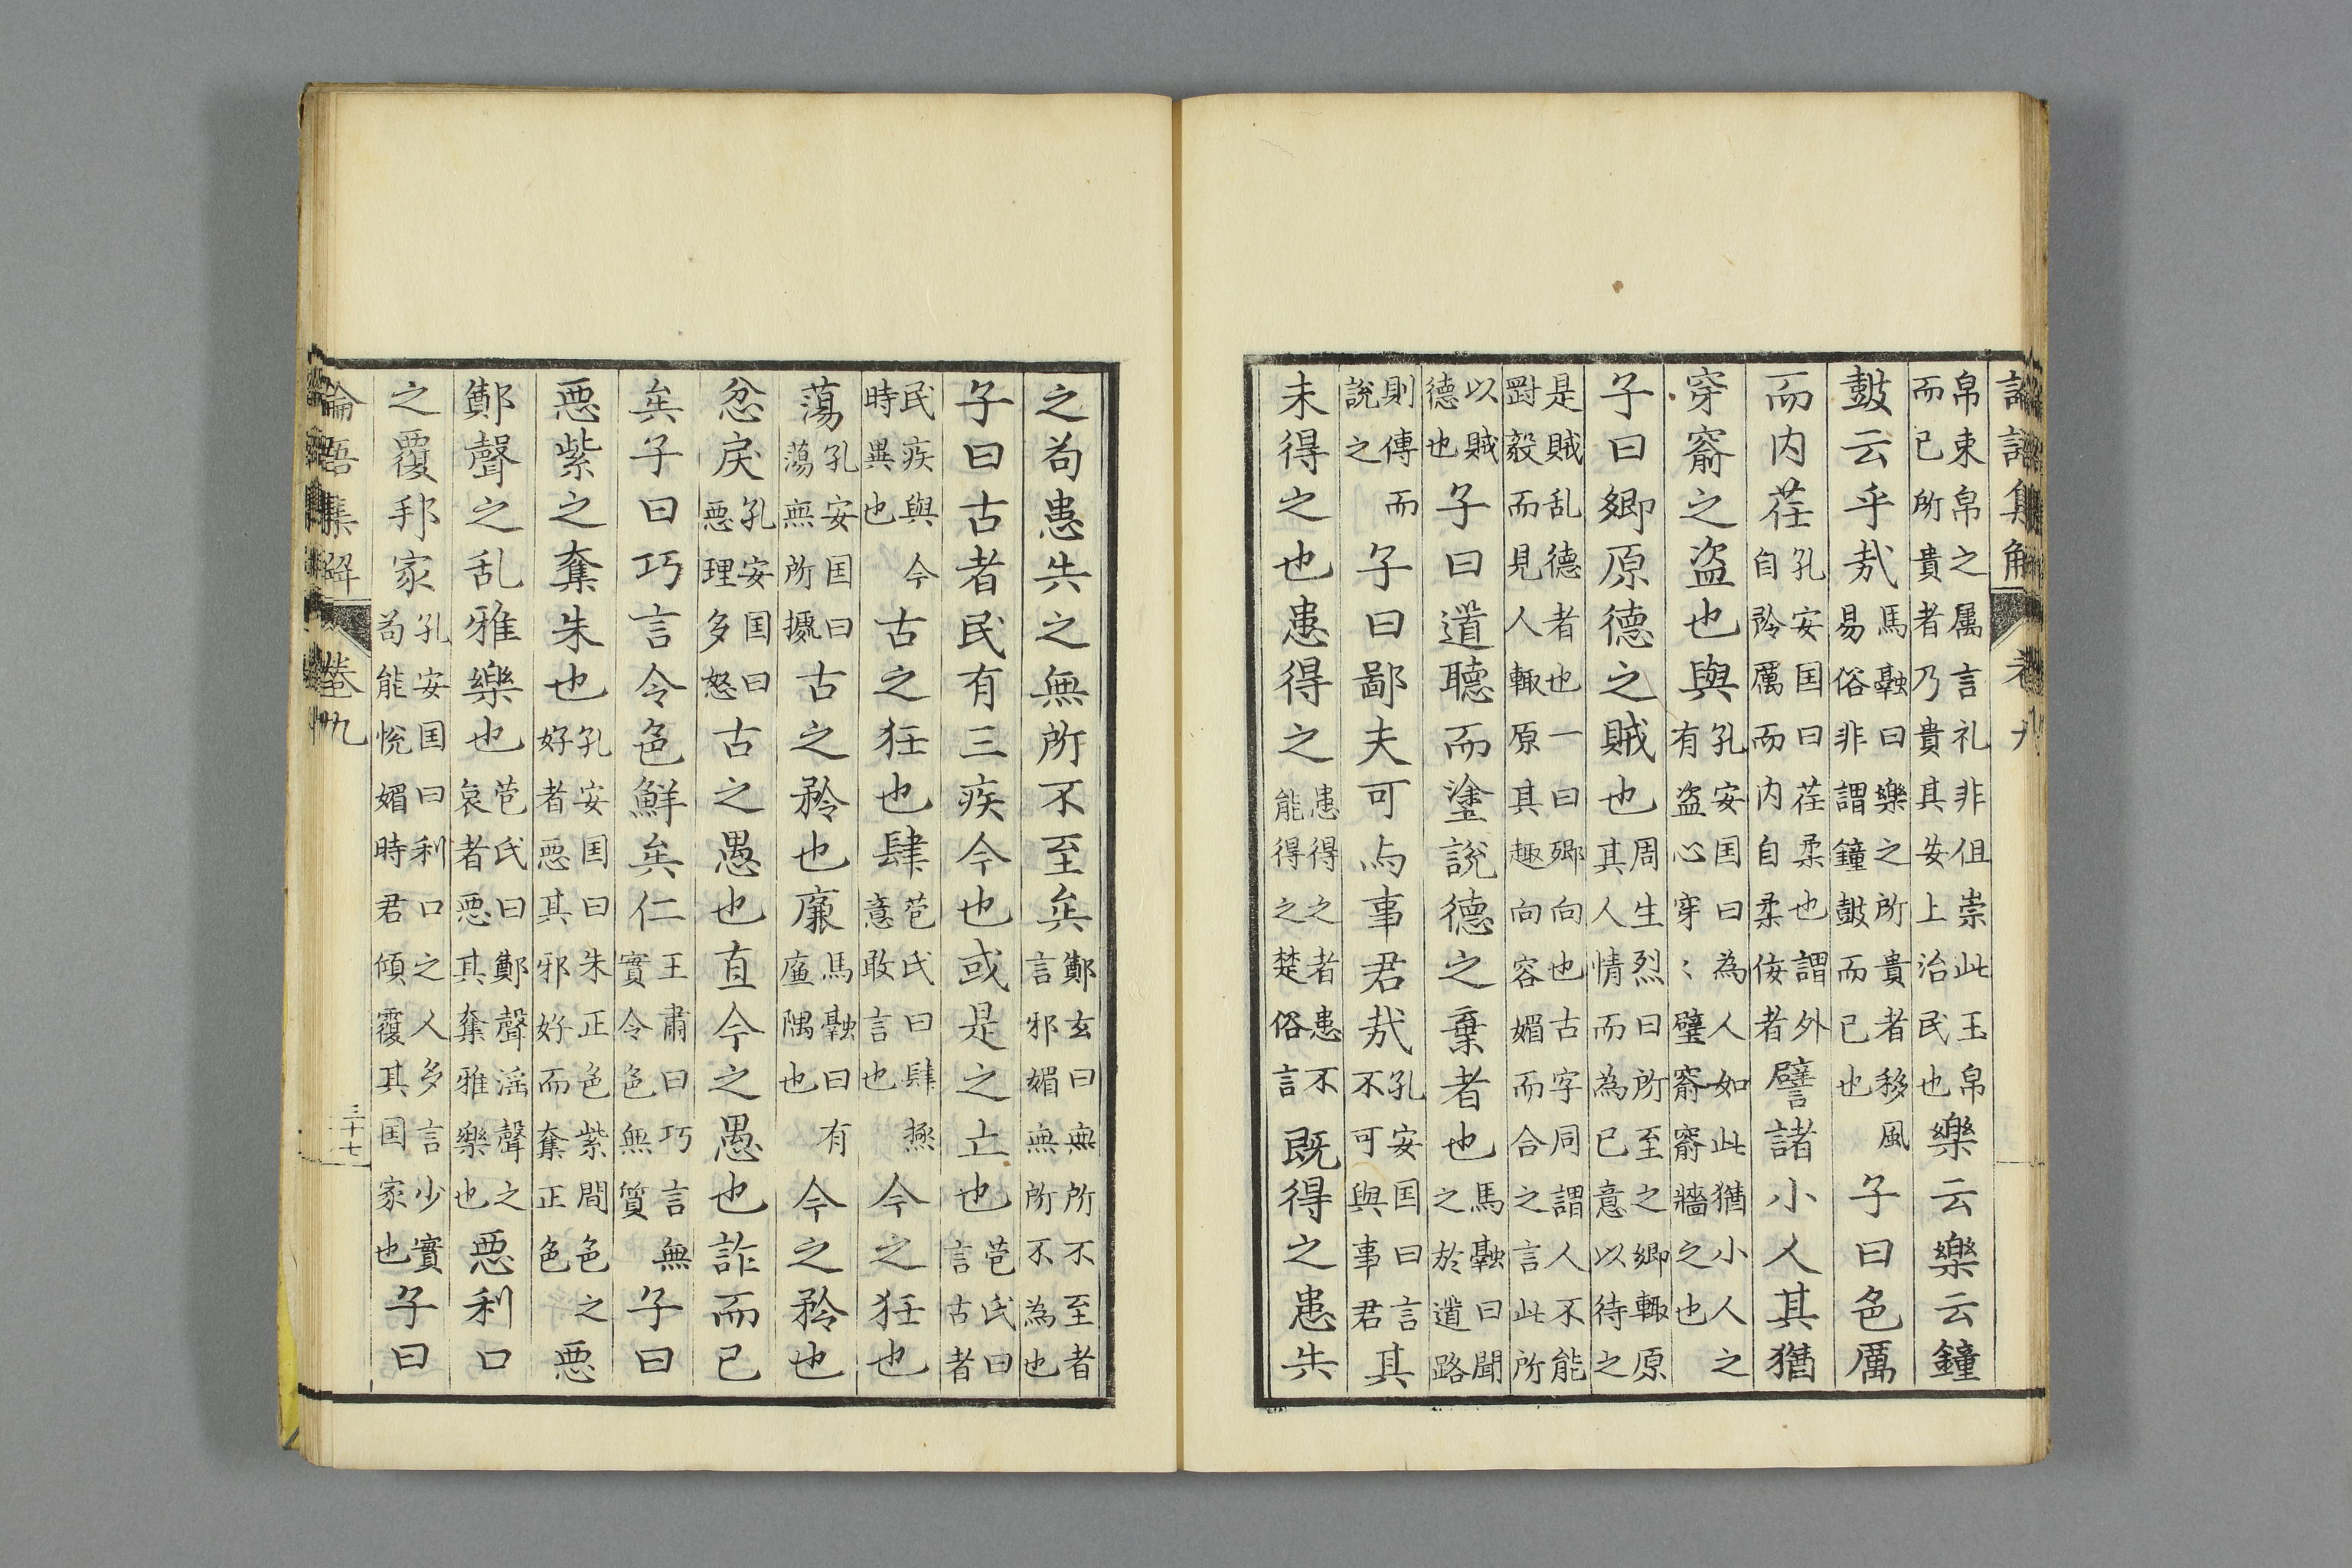 論語集解 卷九
帛束帛之属言礼非但崇此玉帛而已所貴者乃貴其安上治民也樂云樂云鐘
鼓云乎㢤馬融曰樂之所貴者移風易俗非謂鐘鼓而已也子曰色厲
而内荏孔安囯曰荏柔也謂外自矜厲而内自柔佞者譬諸小人其猶
穿窬之盗也與孔安囯曰為人如此猶小人之有盗心穿〻壁窬窬牆之也
子曰郷原德之賊也周生烈曰所至之郷輙原其人情而為已意以待之
是賊乱德者也一曰郷向也古字同謂人不能剛毅而見人輙原其趣向容媚而合之言此所
以賊德也子曰道聽而塗說德之棄者也馬融曰聞之於道路
則傳而說之子曰鄙夫可与事君㢤孔安囯曰言不可與事君其
未得之也患得之患得之者患不能得之楚俗言既得之患失
之苟患失之無所不至矣鄭玄曰無所不至者言邪媚無所不為也
子曰古者民有三疾今也或是之亡也苞氏曰言古者
民疾與今時異也古之狂也肆苞氏曰肆極意敢言也今之狂也
蕩孔安囯曰蕩無所據古之矜也廉馬融曰有廉隅也今之矜也
忿戾孔安囯曰惡理多怒古之愚也直今之愚也詐而已
矣子曰巧言令色鮮矣仁王肅曰巧言無實令色無質子曰
惡紫之奪朱也孔安囯曰朱正色紫間色之好者惡其邪好而奪正色惡
鄭聲之乱雅樂也苞氏曰鄭聲淫聲之哀者惡其奪雅樂也惡利口
之覆邦家孔安囯曰利口之人多言少實苟能悅媚時君傾覆其囯家也子曰
論語集解 卷九 三十七